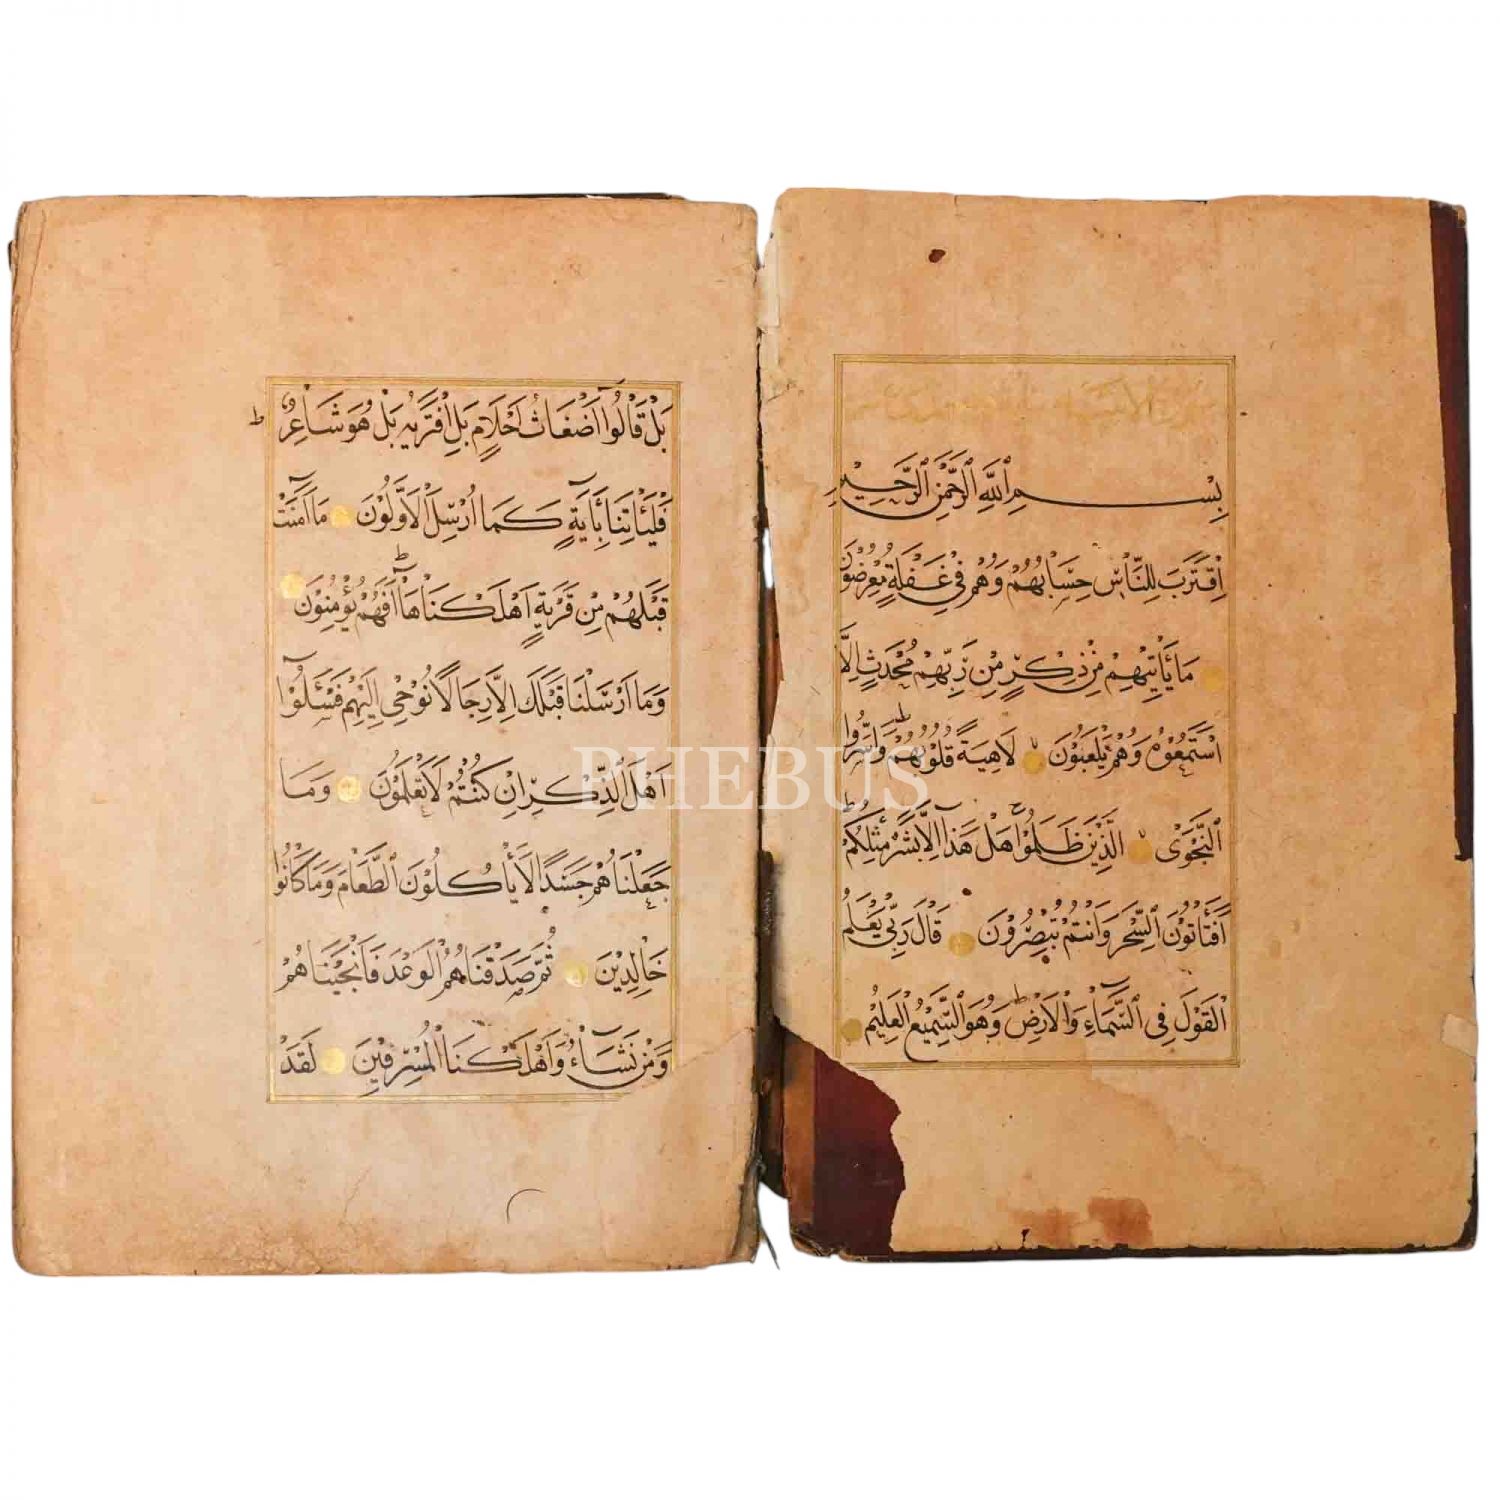 بِسْمِ اللهِ الرَّحْمٰنِ الرَّحِيْمِ
اِقْتَرَبَ لِلنَّاسِ حِسَابُهُمْ وَهُمْ فِيْ غَفْلَةٍ مُعْرِضُوْنَ
مَا يَأْتِيْهِمْ مِنْ ذِكْرٍ مِنْ رَبِّهِمْ مُحْدَثٍ اِلَّا
اسْتَمَعُوْهُ وَهُمْ يَلْعَبُوْنَ لَاهِيَةً قُلُوْبُهُمْ وَاَسَرُّوا
النَّجْوَىْ الَّذِيْنَ ظَلَمُوْا هَلْ هٰذَا اِلَّا بَشَرٌ مِثْلُكُمْ
اَفَتَأْتُوْنَ السِّحْرَ وَاَنْتُمْ تُبْصِرُوْنَ قَالَ رَبِّيْ يَعْلَمُ
الْقَوْلَ فِي السَّمَاءِ وَالْاَرْضِ وَهُوَ السَّمِيْعُ الْعَلِيْمُ
بَلْ قَالُوْا اَضْغَاثُ اَحْلَامٍ بَلِ افْتَرٰيهُ بَلْ هُوَ شَاعِرٌ ط
فَلْيَأْتِنَا بِاٰيَةٍ كَمَا اُرْسِلَ الْاَوَّلُوْنَ مَا اٰمَنَتْ
قَبْلَهُمْ مِنْ قَرْيَةٍ اَهْلَكْنَاهَا اَفَهُمْ يُؤْمِنُوْنَ
وَمَا اَرْسَلْنَا قَبْلَكَ اِلَّا رِجَالًا نُوْحِيْ اِلَيْهِمْ فَسْـَٔلُوْا
اَهْلَ الذِّكْرِ اِنْ كُنْتُمْ لَا تَعْلَمُوْنَ وَمَا
جَعَلْنَاهُمْ جَسَدًا لَا يَأْكُلُوْنَ الطَّعَامَ وَمَا كَانُوْا
خَالِدِيْنَ ثُمَّ صَدَقْنَاهُمُ الْوَعْدَ فَاَنْجَيْنَاهُمْ
وَمَنْ نَشَاءُ وَاَهْلَكْنَا الْمُسْرِفِيْنَ لَقَدْ
PHEBUS